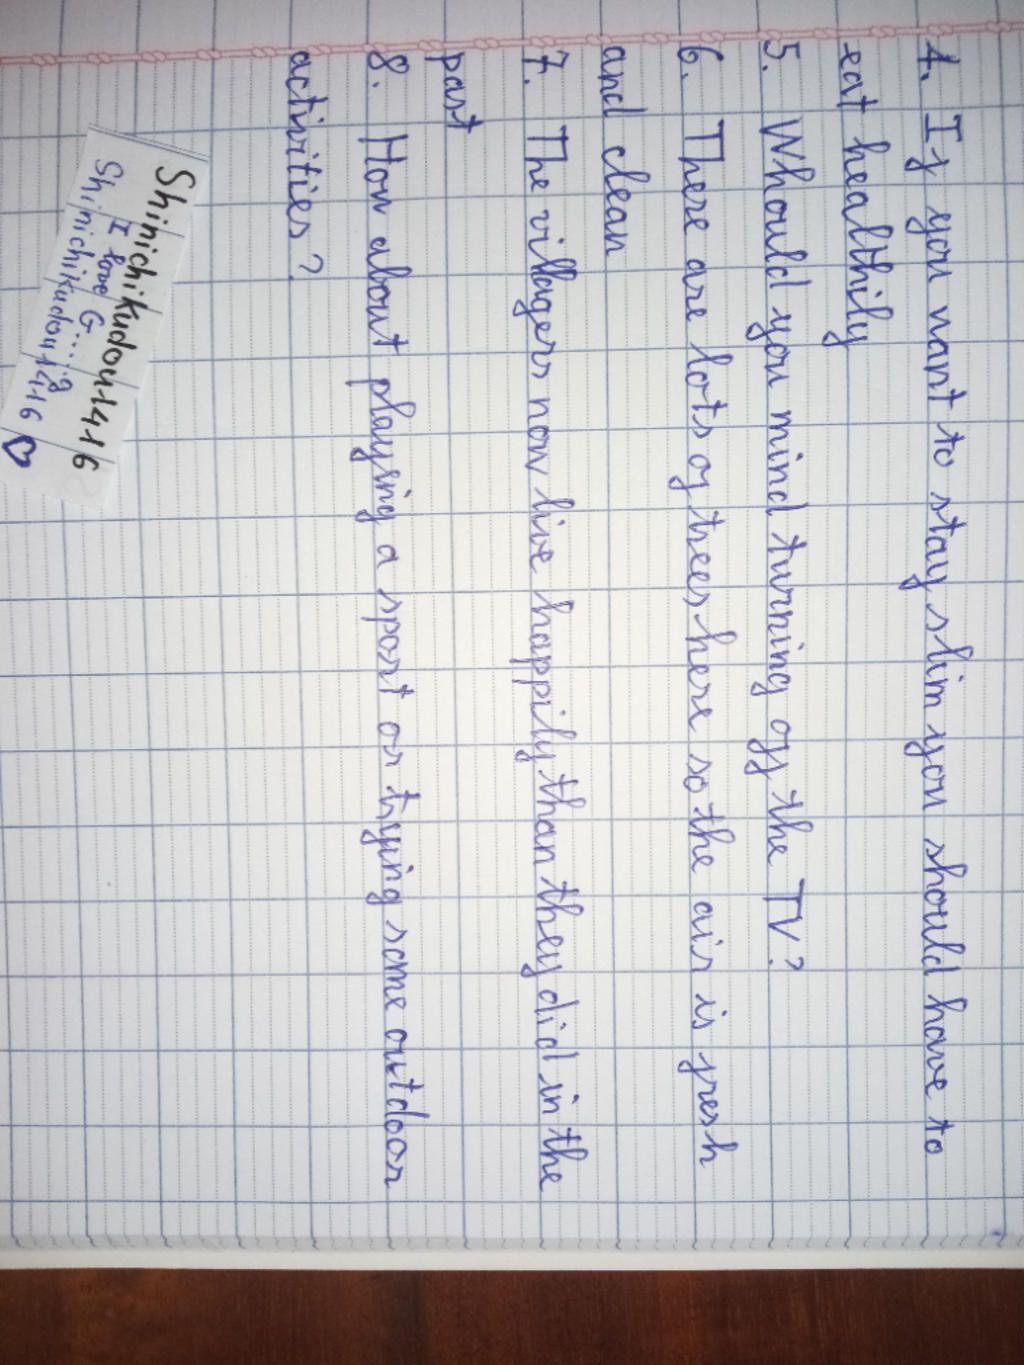 4. If you want to stay slim you should have to
eat healthily
5. Whould you mind turning off the TV?
6. There are lots of trees here so the air is fresh
and clean
7. The villagers now live happily than they did in the
past
8. How about playing a sport or trying some outdoor
activities?
Shinichikudou1416
I love G....g
Shinichikudou1416